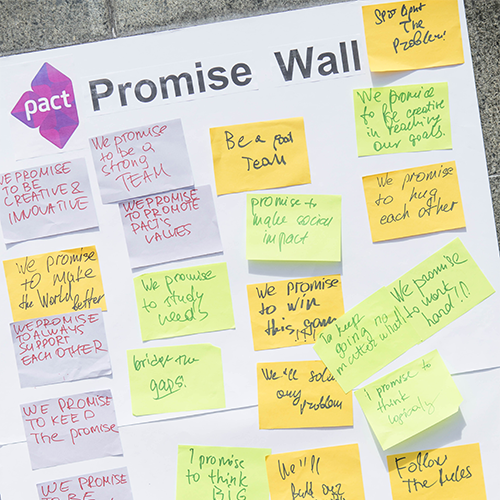 pact
Promise Wall
Spot light
The
Problem!
We promise
to be creative
in reaching
our goals.
We promise
to be a
strong
TEAM
Be a good
Team
WE PROMISE
TO BE
CREATIVE &
INNOVATIVE
WE PROMISE
TO PROMOTE
PACT'S
VALUES
promise to
make social
impact
We promise
to hug
each other
We promise
to make
the World better
We promise
to study
needs
We promise
to win
this game
We promise
to work
hard!!!
To keep
going no
matter what
WE PROMISE
TO ALWAYS
SUPPORT
EACH OTHER
bridge the
gaps.
We'll solve
any
problem
I promise to
think
WE PROMISE
TO KEEP
The promise
I promise
to think
BIG
We'll
Follow
the Rules
WE PROMISE
TO BE